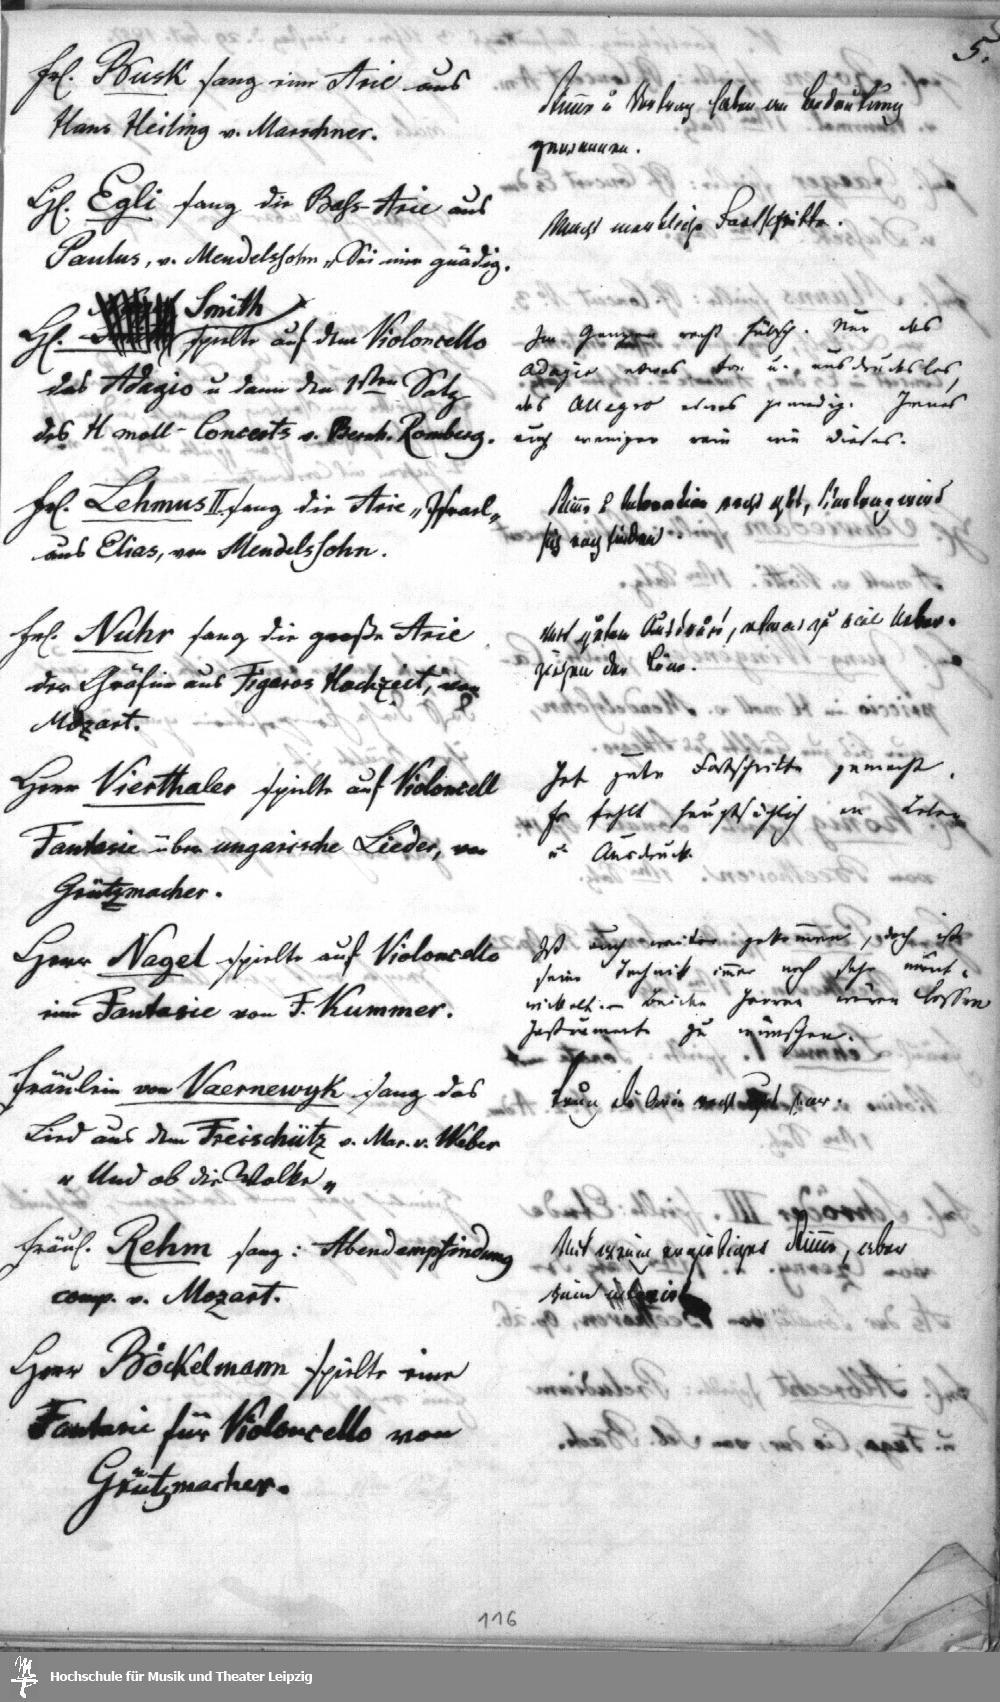 5.
Frl. Busk sang eine Arie aus
Hans Heiling v. Marschner.
Stimme u Vortrag haben an Bedeutung
gewonnen.
H. Egli sang die Bass-Arie aus
Paulus, v. Mendelssohn „Sei mir gnädig.
Macht merkliche Fortschritte.
Smith
H. spielte auf dem Violoncello
das Adagio u dann den 1sten Satz
des H moll-Concerts v. Bernh. Romberg.
Im Ganzen recht hübsch. Nur das
Adagio etwas ton u. ausdruckslos,
das Allegro etwas . Jenes
auch weniger rein wie dieses.
Frl. Lehmus II. sang die Arie „Israel„
aus Elias, von Mendelssohn.
Stimme & Intonation recht gut,
sich noch finden.
Frl. Nühr sang die große Arie
der Gräfin aus Figaros Hochzeit, von
Mozart.
Mit gutem Ausdruck, etwas zu viel Ueber-
ziehen der Töne.
Herr Vierthaler spielte auf Violoncell
Fantasie über ungarische Lieder, von
Grützmacher.
Hat gute Fortschritte gemacht.
Es fehlt hauptsächlich an Leben
u. Ausdruck.
Herr Nagel spielte auf Violoncello
eine Fantasie von F. Kummer.
Ist auch weiter gekommen, doch ist
seine Technik immer noch sehr unent-
wickelt. Beiden Herren wären bessere
Instrumente zu wünschen.
Fräulein von Vaernewyk sang das
Lied aus dem Freischütz v. Mar. v. Weber
„ Und ob die Wolke „
Trug die Arie recht gut vor.
Fräul. Rehm sang: Abendempfindung
comp. v. Mozart.
Hat Stimme, aber
Herr Böckelmann spielte eine
Fantasie für Violoncello von
Grützmacher.
116
Hochschule für Musik und Theater Leipzig